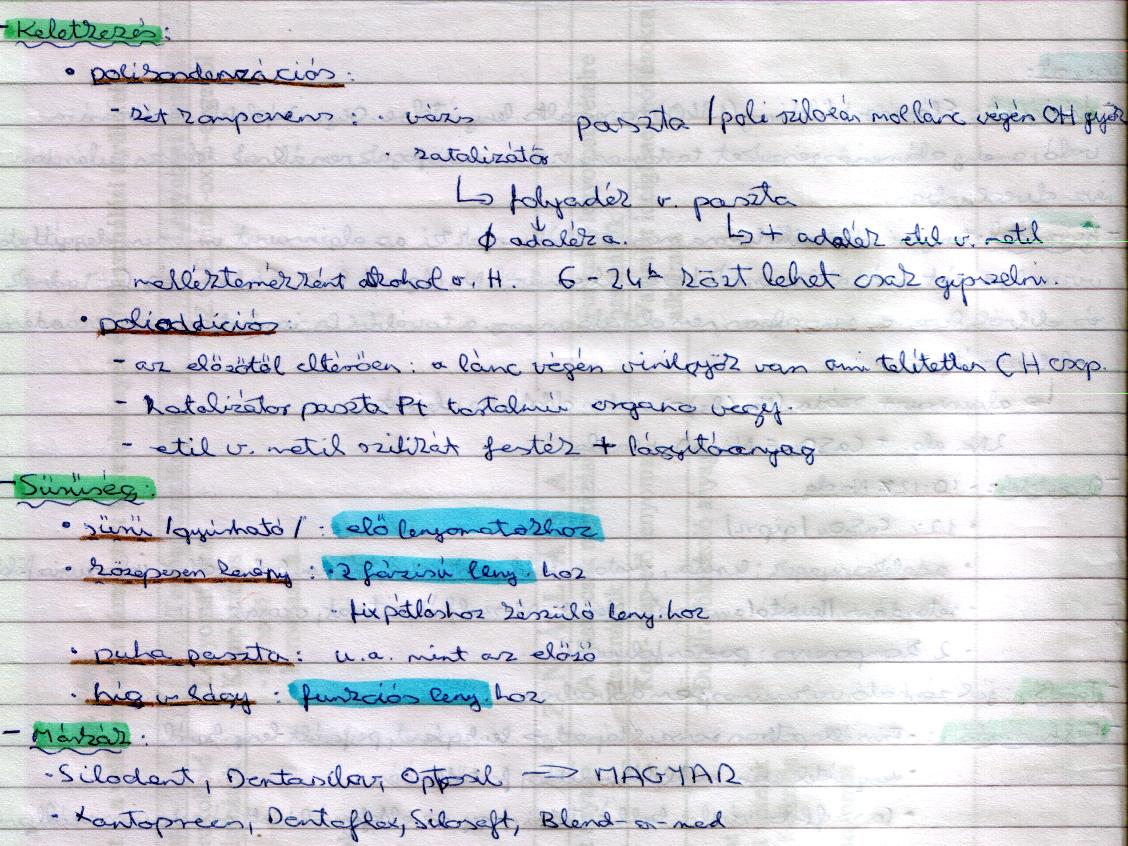 - Keletkezés:
• polikondenzációs:
- két komponens: · bázis paszta / poli sziloxán mol lánc végén OH gyök
· katalizátor
↳ folyadék v. paszta
↓ ↳ + adalék etil v. metil
ϕ adaléka.
melléktermékként alkohol v. H. 6-24h közt lehet csak gipszelni.
• poliaddíciós:
- az előzőtől eltérően: a lánc végén vinilgyök van ami telítetlen CH csop.
- katalizátor paszta Pt tartalmú organo vegy.
- etil v. metil szilikát festék + lágyítóanyag
- Sűrűség:
• sűrű /gyúrható/: elő lenyomatokhoz
• közepesen kemény: · 2 fázisú leny. hoz
- fixpótláshoz készülő leny.hoz
• puha paszta: u.a. mint az előző
• híg v. lágy: funkciós leny.hoz
- Márkák:
· Silodent, Dentasilor, Optosil → MAGYAR
· Xantopren, Dentaflex, Silosoft, Blend-a-med